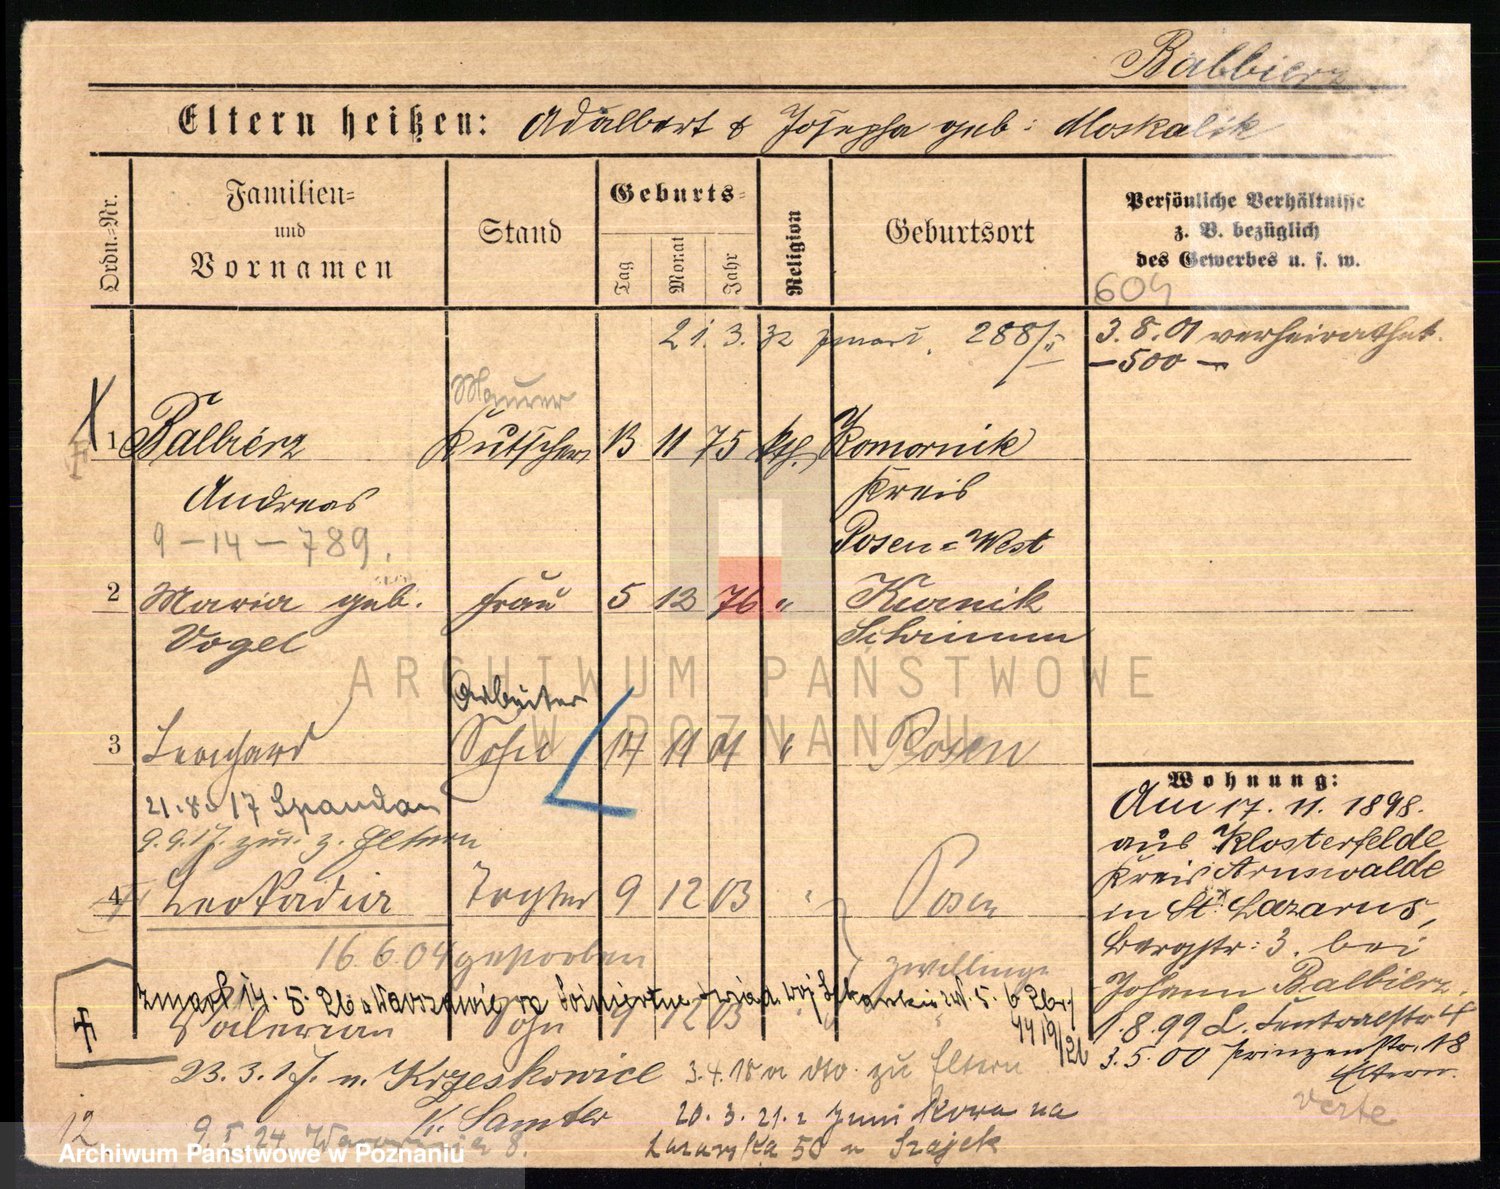 Balbierz
Eltern heißen: Adalbert & Josepha geb: Moskalik
Ordn.-Nr.
Familien- und Vornamen
Stand
Geburts-
Tag
Monat
Jahr
Religion
Geburtsort
Persönliche Verhältnisse
z. B. bezüglich
des Gewerbes u. s. w.
604
21. 3. 32 zmarł. 288/5
3.8.01 verheirathet.
-500-
Maurer
1 Balbierz Kutscher 13 11 75 kth. Komornik
Andreas Kreis
9-14-789. Posen-West
2 Maria geb. Frau 5 12 76 " Kurnik
Vogel Schrimm
Arbeiter
3 Leonhard Sohn 14 11 01 " Posen
21.8.17 Spandau
9.9.17. zur. z. Eltern
4 Leokadia Tochter 9 12 03 " Posen
16.6.04 gestorben
Zwillinge
zmarł 14. 5. 26 w Warszawie
Valerian Sohn 9 12 03 "
1419/26
23.3.17. n. Krzeskowice 3.4.18 v dto. zu Eltern
K. Samter 20. 3. 21. z
12 9.5.24 Warszawa 8. Lazarska 50 u Szajek
Wohnung:
Am 17. 11. 1898.
aus Klosterfelde
Kreis Arnswalde
in St. Lazarus,
Bergstr: 3. bei
Johann Balbierz.
1.8.99 L. Centralstr 4
3.5.00 Prinzenstr. 18
Eltern.
verte
ARCHIWUM PAŃSTWOWE
W POZNANIU
Archiwum Państwowe w Poznaniu